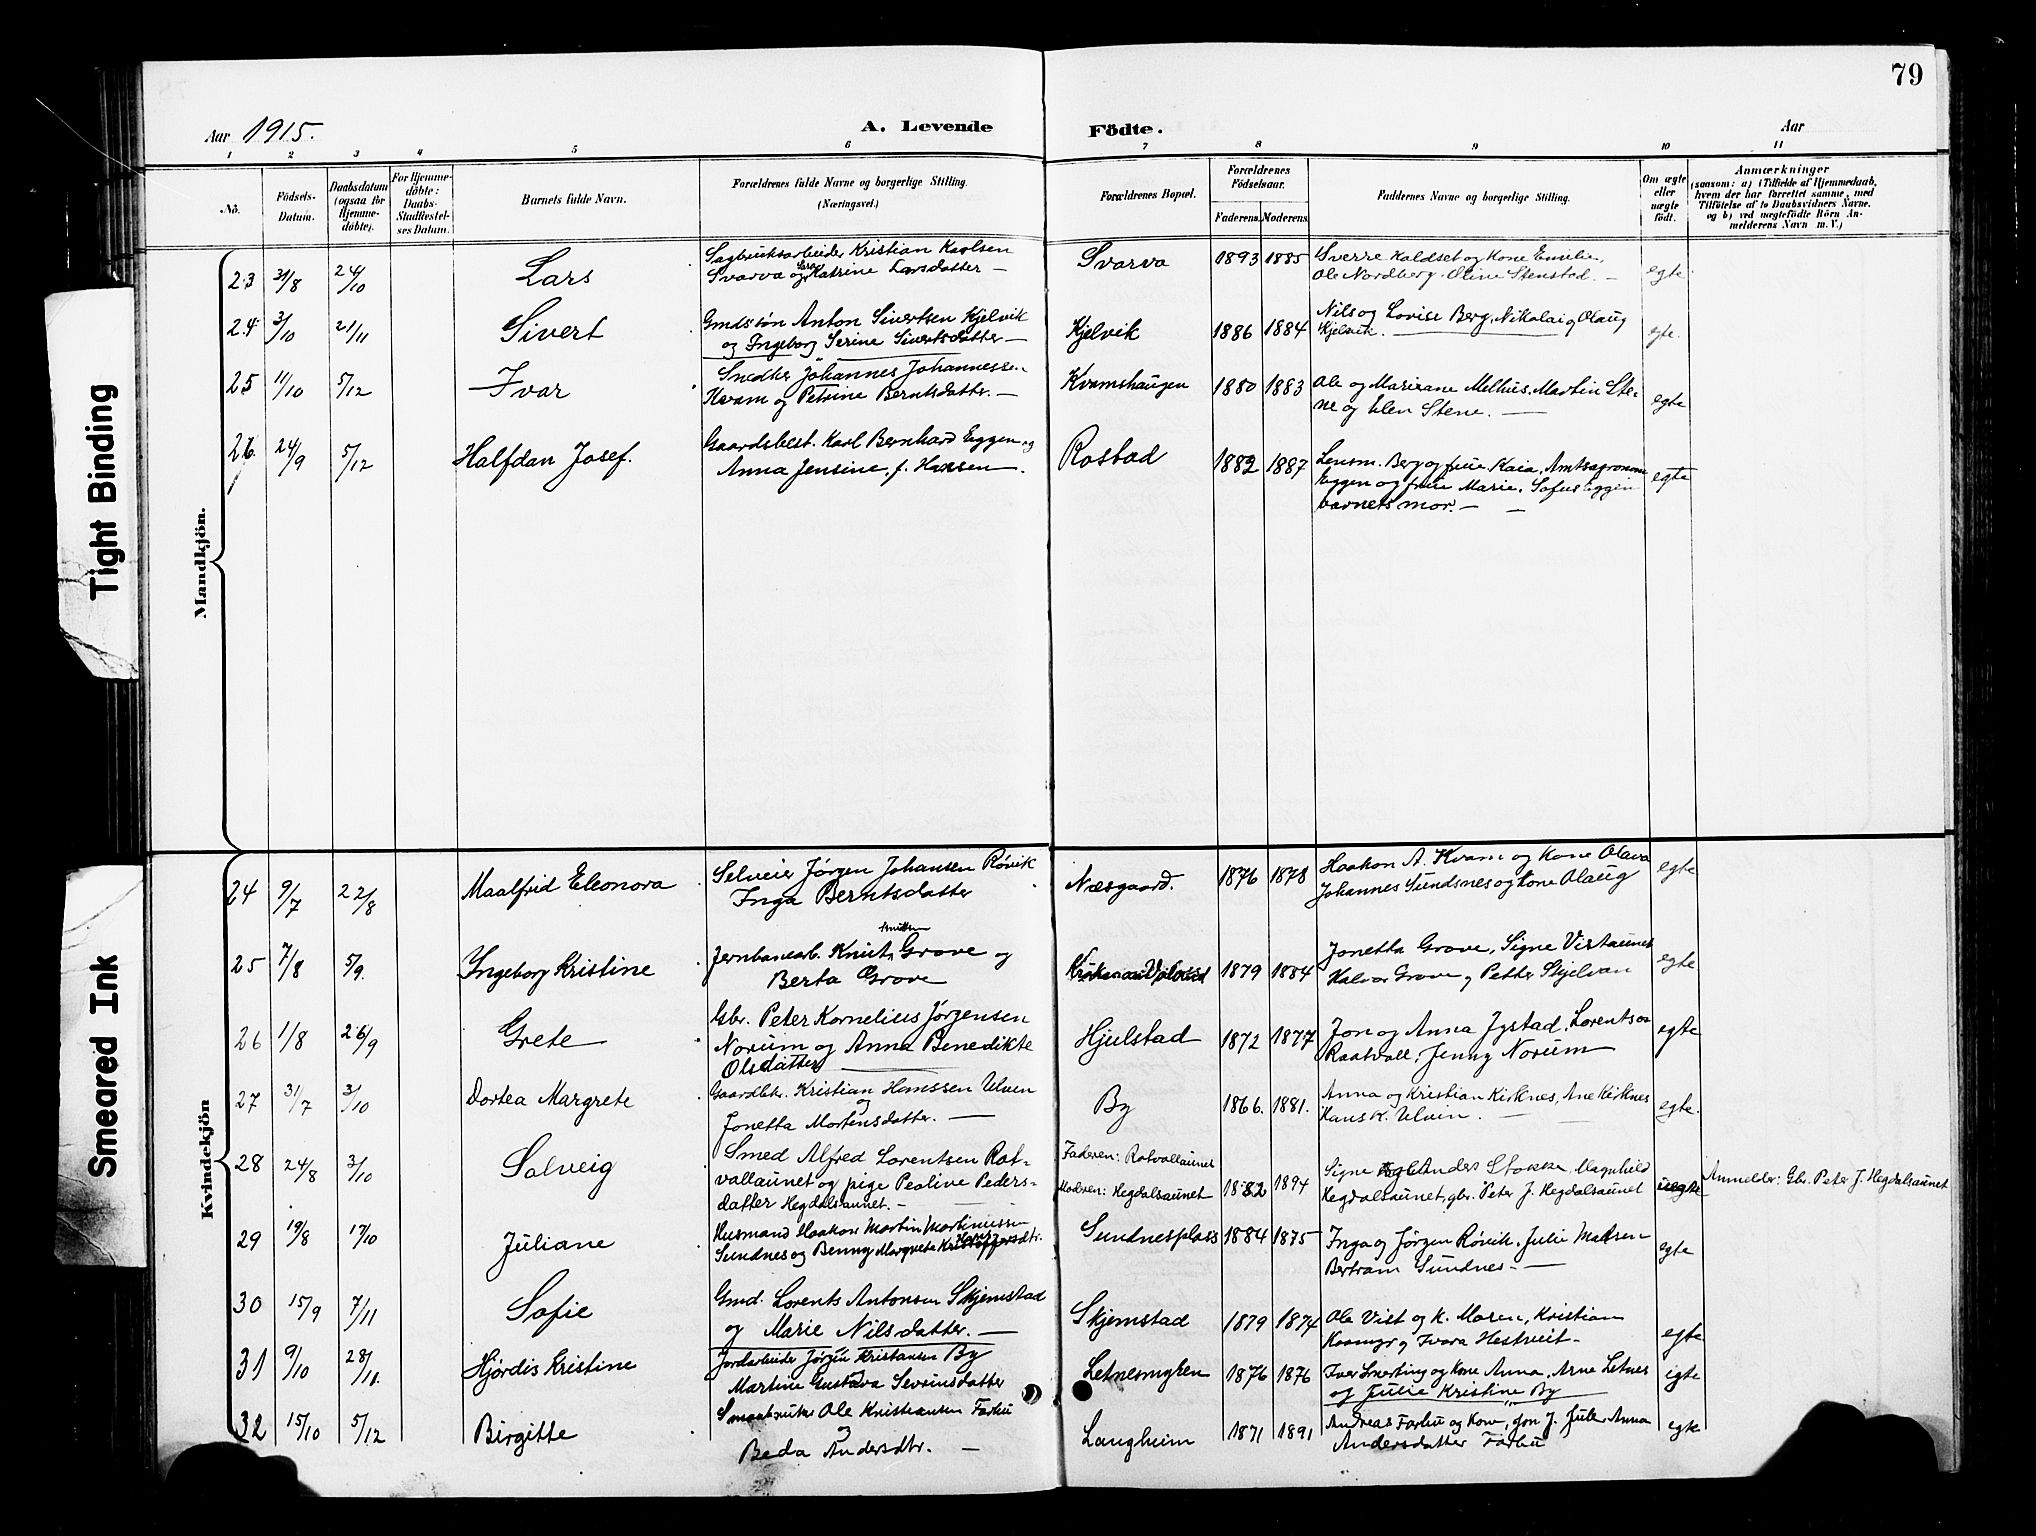 79
Aar 1915.
A. Levende Födte.
Aar
1 2 3 4 5 6 7 8 9 10 11
No.
Födsels-Datum.
Daabsdatum (ogsaa for Hjemme-döbte).
For Hjemme-döbte: Daabs-Stadfæstel-ses Datum.
Barnets fulde Navn.
Forældrenes fulde Navne og borgerlige Stilling.
(Næringsvei.)
Forældrenes Bopæl.
Forældrenes Födselsaar.
Faderens. Moderens.
Faddernes Navne og borgerlige Stilling.
Om ægte eller uægte födt.
Anmærkninger
(saasom: a) i Tilfælde af Hjemmedaab,
hvem der har forrettet samme, med
Tilföielse af to Daabsvidners Navne,
og b) ved uægtefödte Börn An-
melderens Navn m. V.)
Mandkjön.
23 31/8 24/10 Lars
Sagbruksarbeider Kristian Karlsen
Svarva og Katrine Larsdatter —
Svarva 1893 1885
Sverre Haldset og Kone Emilie,
Ole Nordberg. Oline Stenstad. —
egte
24 3/10 21/11 Sivert
Gmdssøn Anton Sivertsen Kjelvik
og Ingeborg Serine Sivertsdatter —
Kjelvik 1886 1884
Nils og Lovise Berg, Nikolai og Olaug
Kjelvik.
egte.
25 11/10 5/12 Ivar
Snedker Johannes Johannessen
Kvam og Petrine Berntsdatter. —
Kvamshaugen 1880 1883
Ole og Marizane Melhus. Martin Ste-
ne og Elen Stene. —
egte
26. 24/9 5/12 Halfdan Josef.
Gaardsbest. Karl Bernhard Eggen og
Anna Jensine, f. Hansen.
Rostad 1882 1887
Lensm. Berg og frue Kaia, Amtsagronom
Eggen og frue Marie. Sofus Eggen
barnets mor. —
egte
Kvindekjön
24 9/7 22/8 Maalfrid Eleonora
Selveier Jørgen Johansen Røvik
Inga Berntsdatter
Næsgaard. 1876 1878
Haakon A. Kvam og Kone Olava
Johannes Sundsnes og kone Olaug
egte
25 7/8 5/9. Ingeborg Kristine
Jernbanearb. Knut Grove og
Berta Grove
1879 1884
Jonetta Grove, Signe Vistaunes
Halvor Grove og Petter Skjelvan
egte
26 1/8 26/9 Grete
Gbr. Peter Kornelius Jørgensen
Norum og Anna Benedikte
Olsdatter
Hjulstad 1872 1877
Jon og Anna Jystad, Lorents og
Raatvoll, Jenny Norum
egte
27 31/7 3/10 Dortea Margrete
Gaardbr. Kristian Hanssen Ulven
og
Jonetta Mortensdatter. —
By 1866. 1881.
Anna og Kristian Kirknes, Ane Kirknes
Hans K. Ulven. —
egte.
28 24/8 3/10 Solveig
Smed Alfred Lorentsen Rot-
vallaunet og pige Peoline Peders-
datter Hegdalsaunet. —
Faderen: Rotvollaunet
Moderen: Hegdalsaunet
1882 1894
Signe og Anders Stokke. Magnhild
Hegdalsaunet, gbr. Peter J. Hegdalsaunet
uegte
Anmelder: Gbr. Peter J. Hegdalsaunet
29 19/8 17/10 Juliane
Husmand Haakon Martin Martinussen
Sundnes og Benny Margrete
Sundnesplass 1884 1875
Inga og Jørgen Røvik. Julie Madsen
Bertram Sundnes. —
egte
30 15/9 7/11 Sofie
Gmd. Lorents Antonsen Skjemstad
og Marie Nilsdatter. —
Skjemstad 1879 1874
Ole Vist og K. Maren, Kristian
og Ivara Hestveit.
egte
31 9/10 28/11. Hjørdis Kristine
Jordarbeider Jørgen Kristansen By
Martine Gustava Sevrinsdatter
Letnesmyren 1876 1876
Iver Snerting og Kone Anna. Arne Letnes
og Julie Kristine By
egte
32 15/10 5/12 Birgitte
Smaabruker Ole Kristiansen Farbu
og
Beda Andersdtr. —
Langheim 1871 1891
Andreas Farbu og Kone, Jon J. Jule, Anna
Andersdatter Farbu
egte
Tight Binding
Smeared Ink